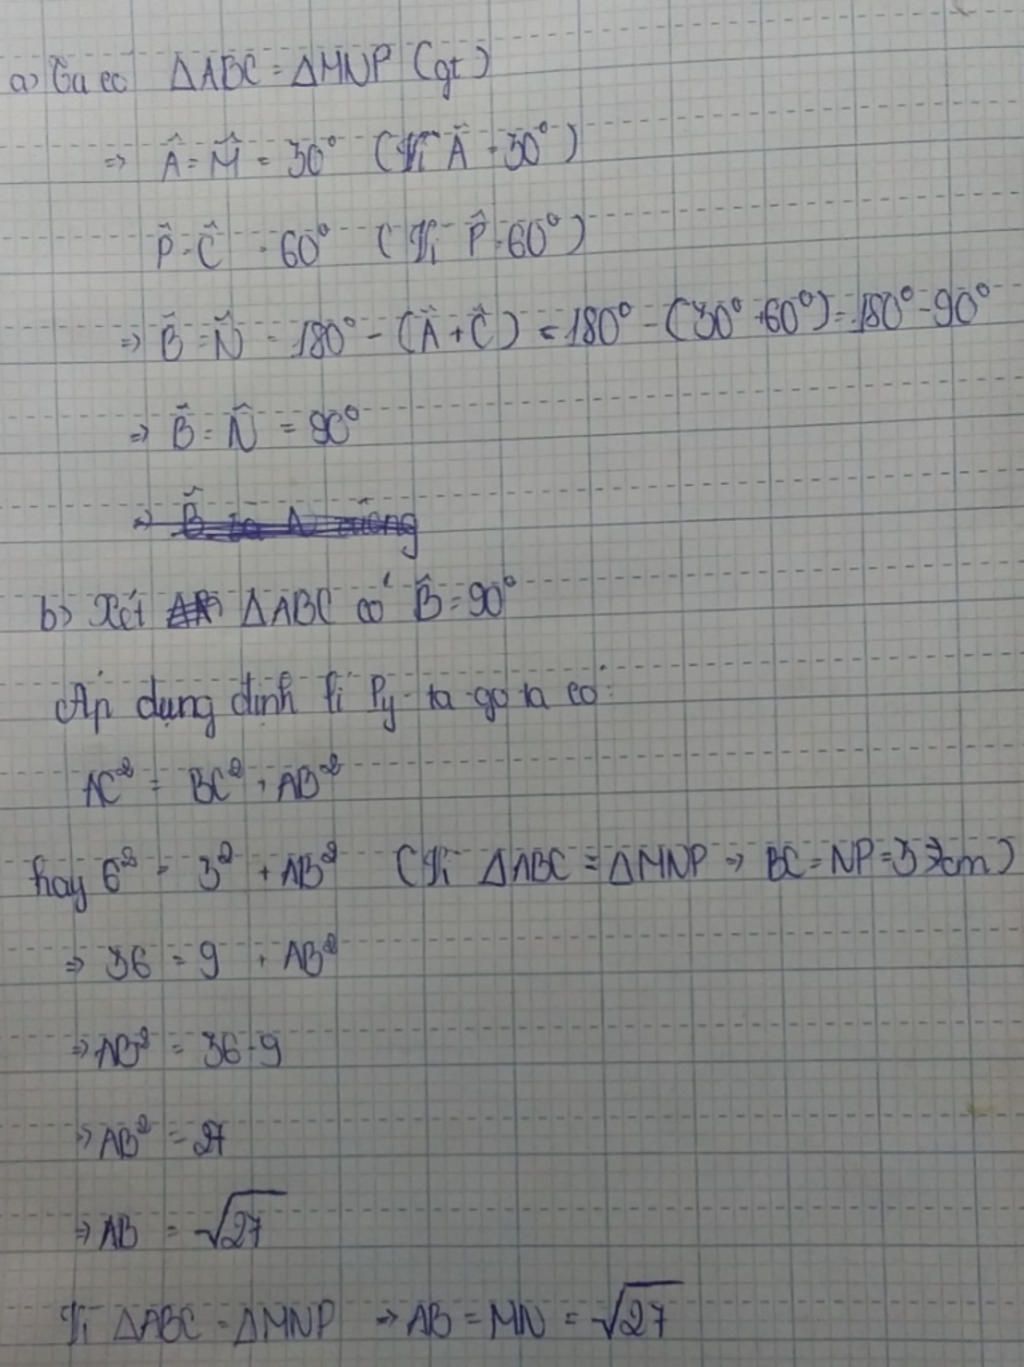 a) Ta có ΔABC = ΔMNP (gt)
=> Â = M̂ = 30° (Vì Â = 30°)
P̂ = Ĉ = 60° (Vì P̂ = 60°)
=> B̂ = N̂ = 180° - (Â + Ĉ) = 180° - (30° + 60°) = 180° - 90°
=> B̂ = N̂ = 90°
b) Xét ΔABC có B̂ = 90°
Áp dụng định lí Py-ta-go ta có:
AC² = BC² + AB²
hay 6² = 3² + AB² (Vì ΔABC = ΔMNP => BC = NP = 3cm)
=> 36 = 9 + AB²
=> AB² = 36 - 9
=> AB² = 27
=> AB = √27
Vì ΔABC = ΔMNP => AB = MN = √27